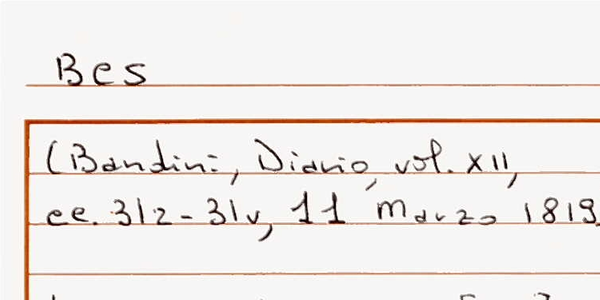 Bes
(Bandini, Diario, vol. XII,
cc. 31r-31v, 11 Marzo 1819,